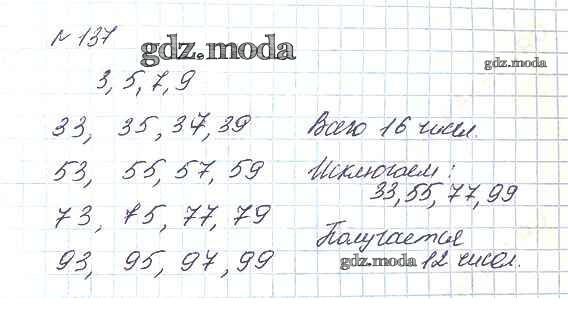 № 137
gdz.moda
gdz.moda
3, 5, 7, 9
33, 35, 37, 39
53, 55, 57, 59
73, 75, 77, 79
93, 95, 97, 99
Всего 16 чисел.
Исключаем:
33, 55, 77, 99
Получается
gdz.moda
12 чисел.